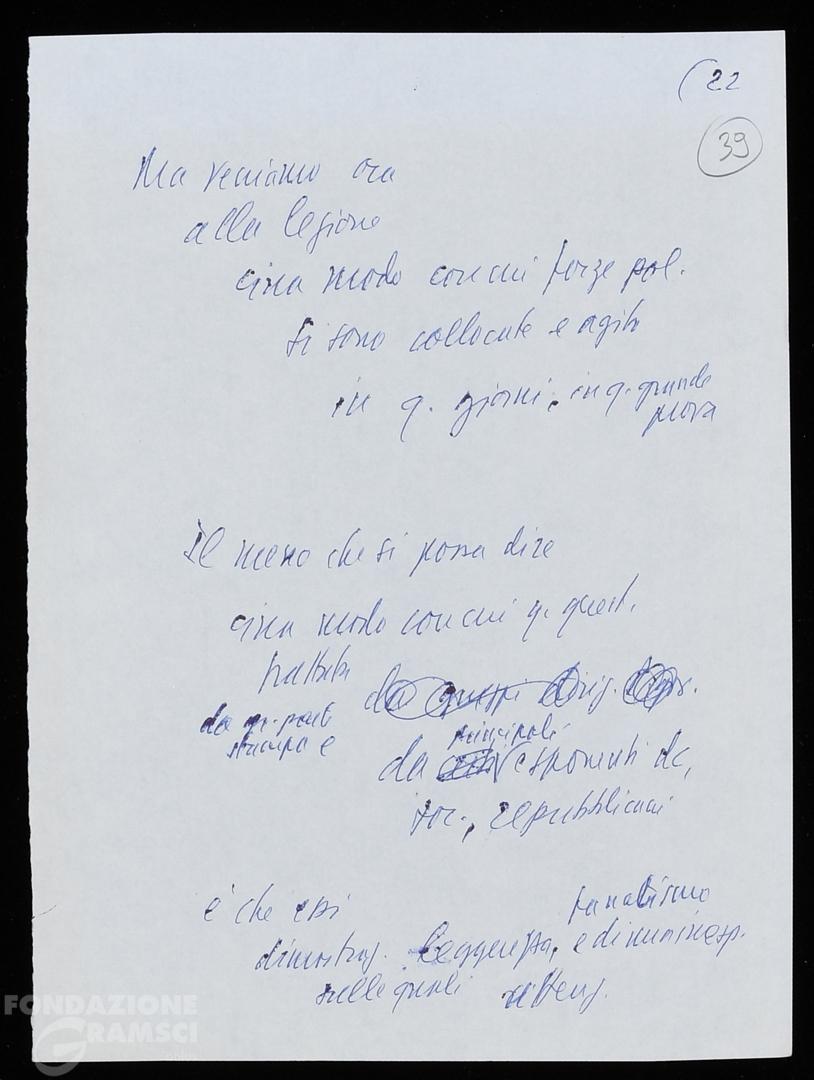 (22
39
Ma veniamo ora
alla lezione
circa modo con cui forze pol.
si sono collocate e agito
in q. giorni, in q. grande
prova
Il meno che si possa dire
circa modo con cui q. quest.
trattata
da dirig.
da gr. parte
stampa e
principali
da esponenti dc,
soc., repubblicani
è che essi
fanatismo
dimostrag. leggerezza, e di
sulle quali
FONDAZIONE
GRAMSCI